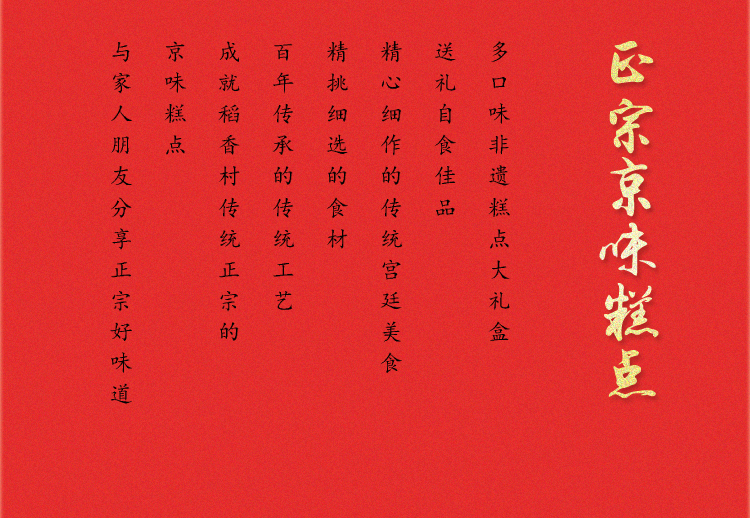 正宗京味糕点
多口味非遗糕点大礼盒
送礼自食佳品
精心细作的传统宫廷美食
精挑细选的食材
百年传承的传统工艺
成就稻香村传统正宗的
京味糕点
与家人朋友分享正宗好味道